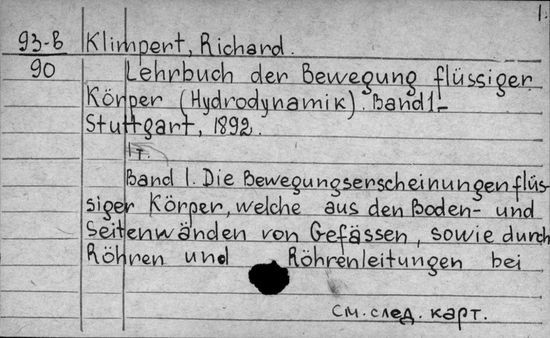 1.
93-B Klimpert, Richard.
90 Lehrbuch der Bewegung flüssiger
Körper (Hydrodynamik). Band 1-
Stuttgart, 1892.
1т.
Band 1. Die Bewegungserscheinungen flüs-
siger Körper, welche aus den Boden- und
Seitenwänden von Gefässen, sowie durch
Röhren und Röhrenleitungen bei
см. след. карт.